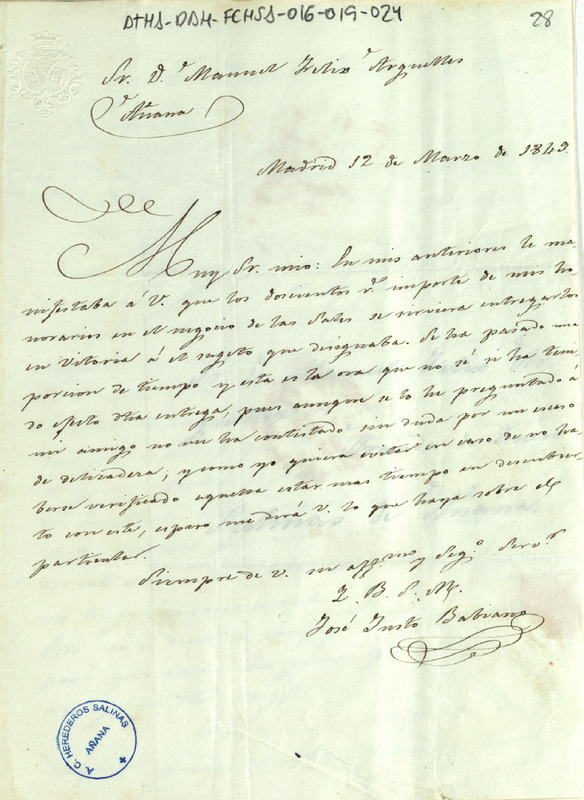 ATHA-DAH-FCHSA-016-019-024
28
Sr. D.n Manuel Felix de Arguelles
Añana
Madrid 12 de Marzo de 1849.
Muy Sr. mio: En mis anteriores le ma-
nifestaba á V. que los doscientos r.s importe de mis ho
norarios en el negocio de las Sales se sirviera entregarlos
en Vitoria á el sugeto que designaba. Se ha pasado una
porcion de tiempo y esta es la ora que no sé si ha teni
do efecto dha entrega, pues aunque se lo he preguntado á
mi amigo no me ha contestado sin duda por un esceso
de delicadeza, y como yo quiera evitar en caso de no ha
berse verificado aquella estar mas tiempo en descubier
to con este, espero me dirá V. lo que haya sobre el
particular.
Siempre de V. su aff.mo y Seg.o Serv.r
Q. B. S. M.
José Justo Babiano
A.C. HEREDEROS SALINAS
AÑANA